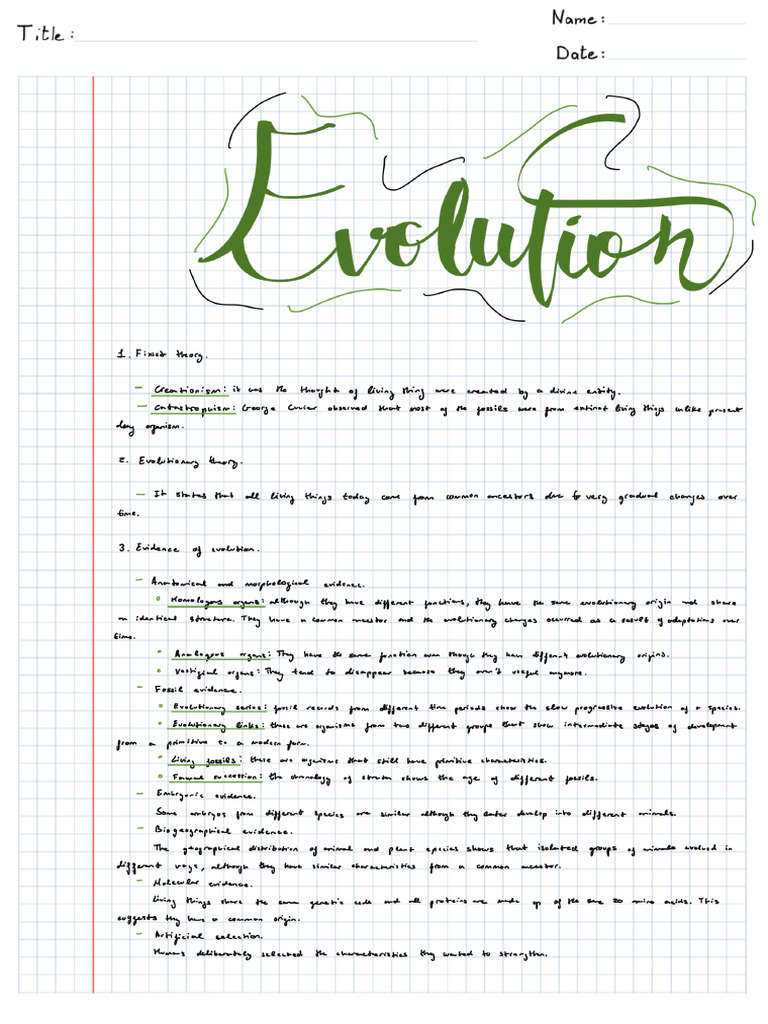 Name:
Title:
Date:
Evolution
1. Fixist theory.
– Creationism: it was the thought of living thing were created by a divine entity.
– Catastrophism: George Cuvier observed that most of the fossils were from extinct living things unlike present
day organism.
2. Evolutionary theory.
– It states that all living things today come from common ancestors due to very gradual changes over
time.
3. Evidence of evolution.
– Anatomical and morphological evidence.
° Homologous organs: although they have different functions, they have the same evolutionary origin and share
an identical structure. They have a common ancestor and the evolutionary changes occurred as a result of adaptations over
time.
° Analogous organs: They have the same function even though they have different evolutionary origins.
° Vestigial organs: They tend to disappear because they aren't useful anymore.
– Fossil evidence.
° Evolutionary series: fossil records from different time periods show the slow progressive evolution of a species.
° Evolutionary links: these are organisms from two different groups that show intermediate stages of development
from a primitive to a modern form.
° Living fossils: these are organisms that still have primitive characteristics.
° Faunal succession: the chronology of strata shows the age of different fossils.
– Embryonic evidence.
Some embryos from different species are similar although they later develop into different animals.
– Biogeographical evidence.
The geographical distribution of animal and plant species shows that isolated groups of animals evolved in
different ways, although they have similar characteristics from a common ancestor.
– Molecular evidence.
Living things share the same genetic code and all proteins are made up of the same 20 amino acids. This
suggests they have a common origin.
– Artificial selection.
Humans deliberately selected the characteristics they wanted to strengthen.